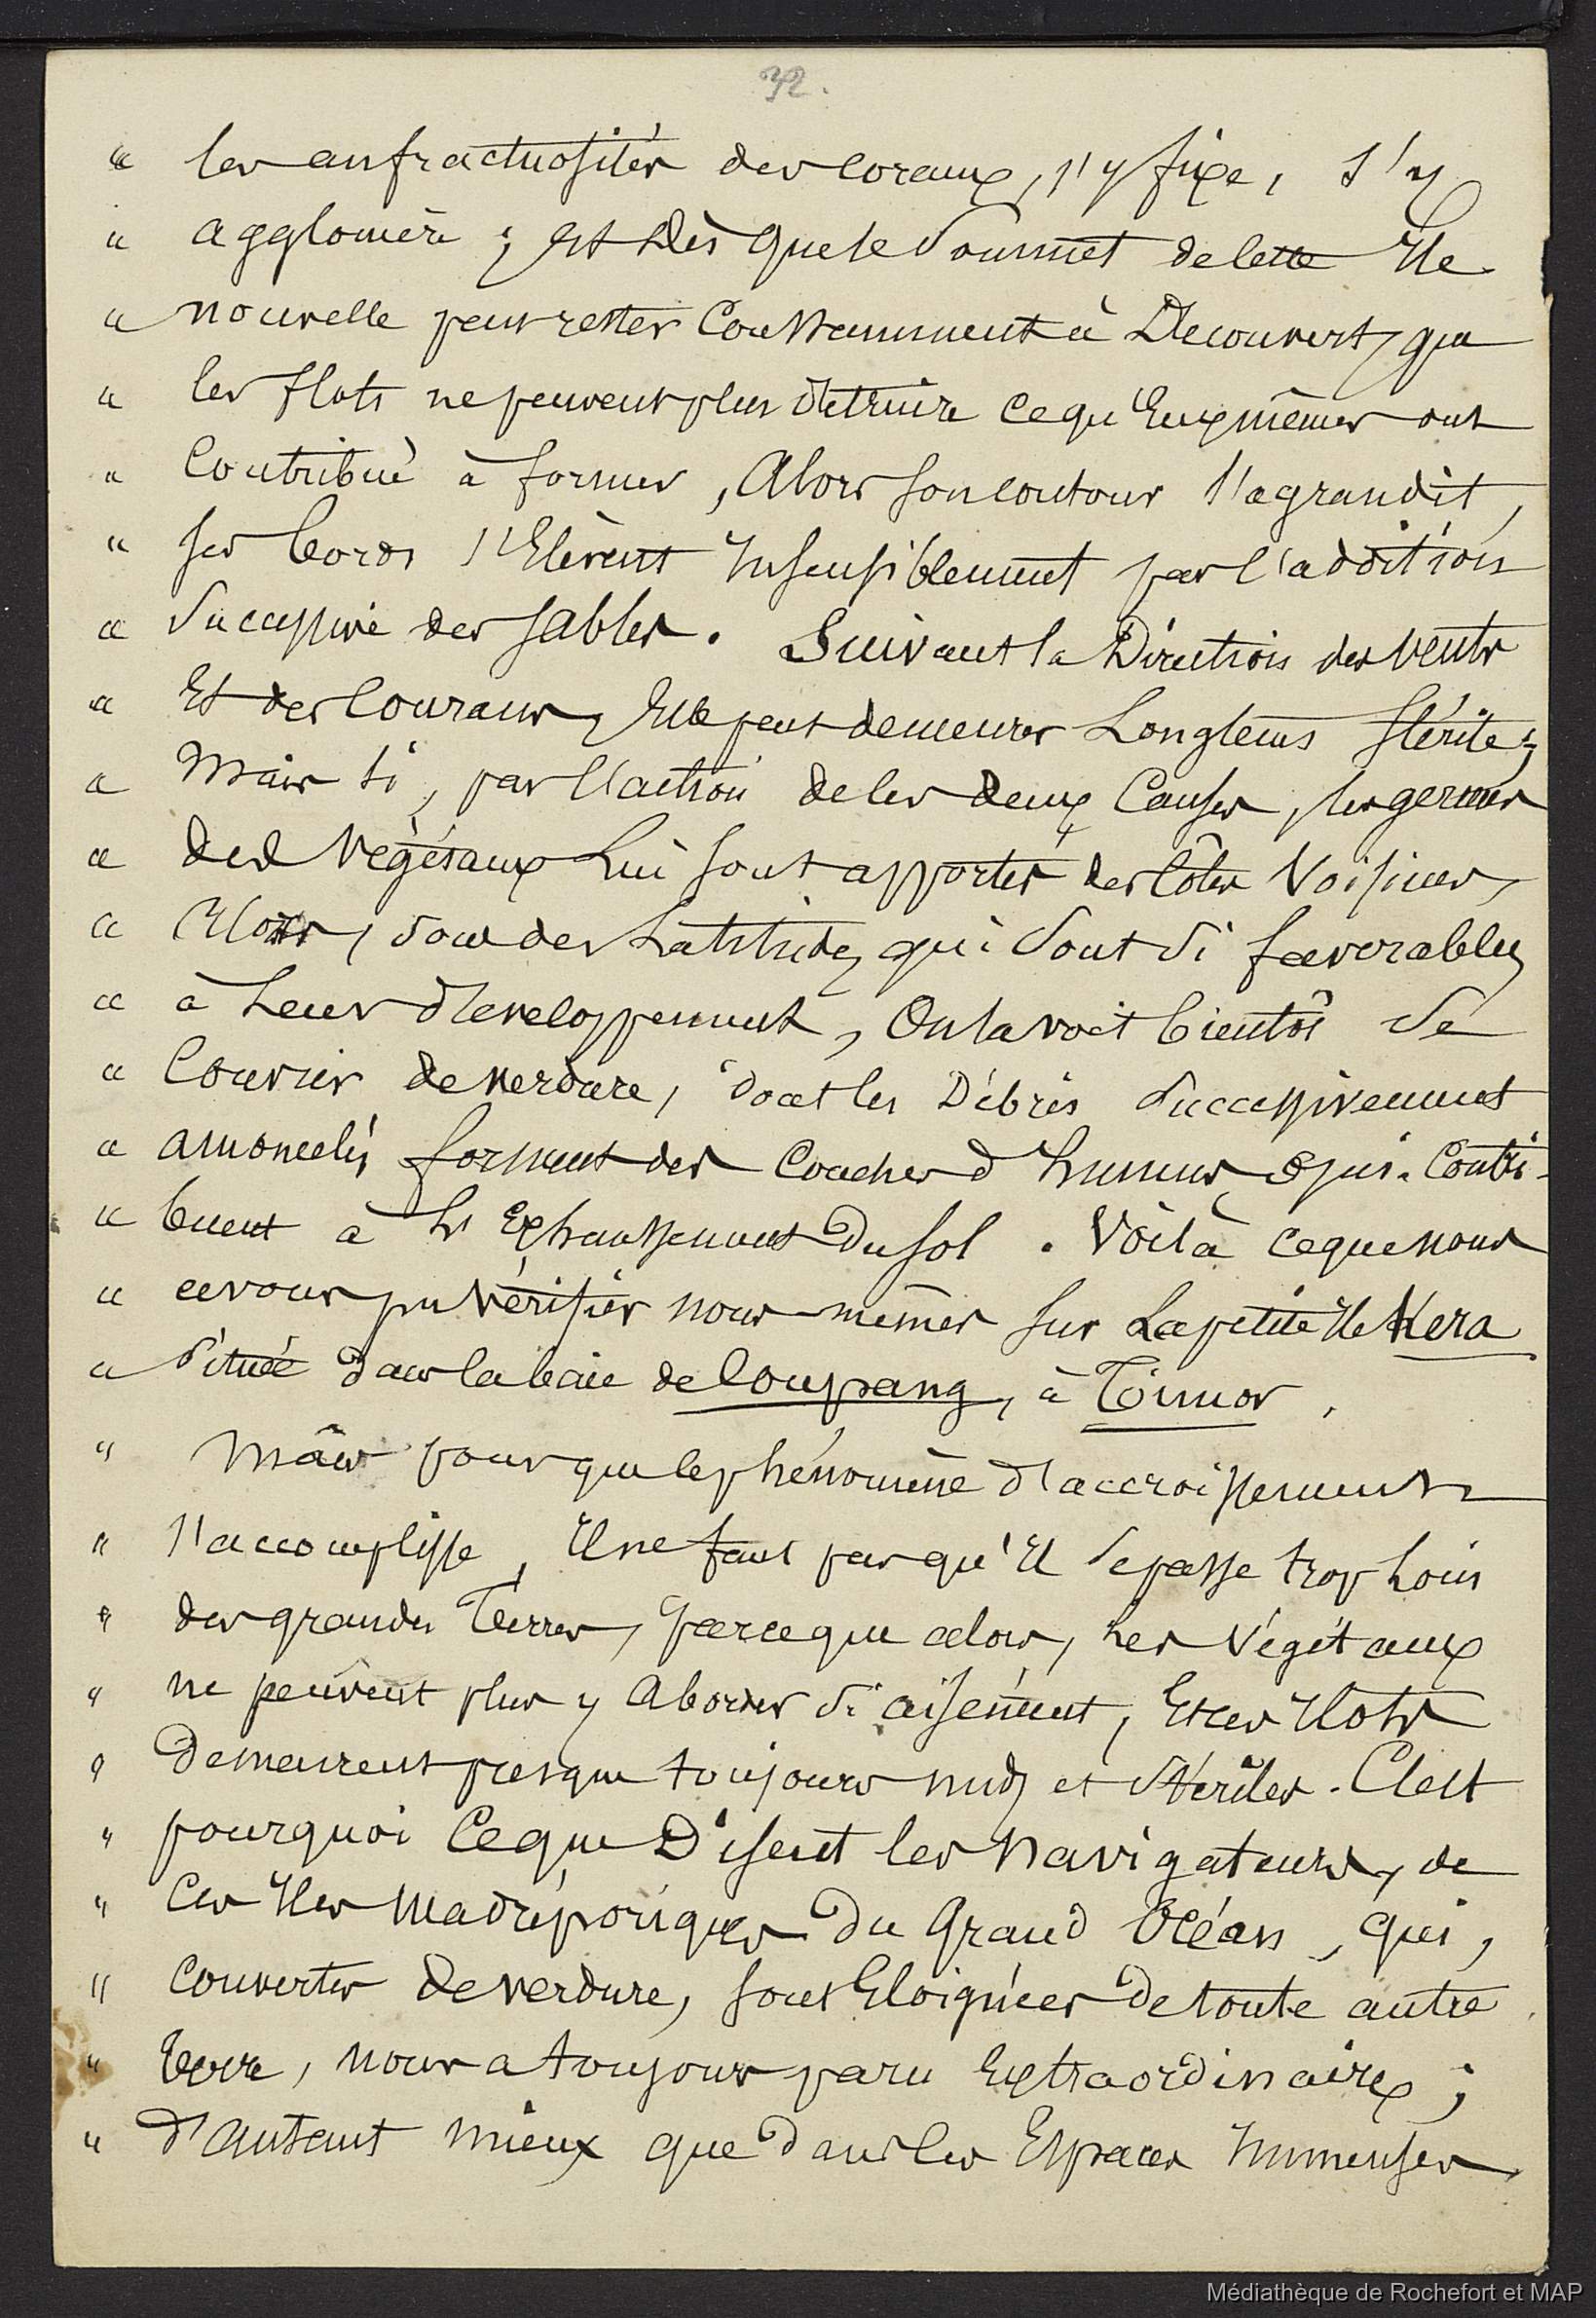 32.
" les anfractuosités des coraux, s'y fixe, s'y
" agglomère ; Et dès que le sommet de cette Ile
" nouvelle peut rester Constamment à Découvert, que
" les flots ne peuvent plus détruire ce qu'Eux mêmes ont
" Contribué à former, Alors son contour s'agrandit,
" ses bords s'Elèvent Insensiblement par l'addition
" Successive des sables. Suivant la Direction des vents
" Et des Courans, Elle peut demeurer Longtems stérile ;
" Mais si, par l'action de ces deux Causes, les germes
" des végétaux Lui sont apportés des côtes Voisines,
" Alors, sous des Latitudes qui sont si favorables
" à Leur développement, On la voit bientôt se
" Couvrir de verdure, dont les Débris Successivement
" amoncelés forment des Couches d'humus qui Contri-
" buent à L'Exhaussement du sol. Voilà ce que nous
" avons pu vérifier nous-mêmes sur La petite Ile Kera
" située dans la baie de Coupang, à Timor.
" Mais pour que le phénomène d'accroissement
" s'accomplisse, Il ne faut pas qu'Il se passe trop Loin
" des grandes Terres, parce que alors, Les Végétaux
" ne peuvent plus y Aborder si aisément, Et ces Ilots
" Demeurent presque toujours nuds et stériles. C'est
" pourquoi Ce que Disent les Navigateurs, de
" Ces Iles Madréporiques du Grand Océan, qui,
" Couvertes de verdure, sont Eloignées de toute autre
" terre, nous a toujours paru Extraordinaire ;
" d'autant mieux que dans les Espaces Immenses
Médiathèque de Rochefort et MAP